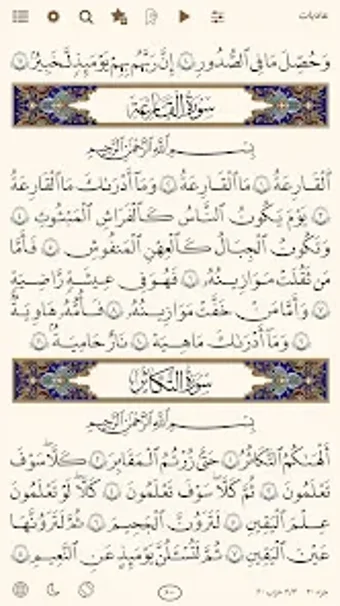 عادیات
وَحُصِّلَ مَا فِي ٱلصُّدُورِ ۝ إِنَّ رَبَّهُم بِهِمْ يَوْمَئِذٍ لَّخَبِيرٌ ۝
سُورَةُ القَارِعَةِ
بِسْمِ ٱللَّهِ ٱلرَّحْمَٰنِ ٱلرَّحِيمِ
ٱلْقَارِعَةُ ۝ مَا ٱلْقَارِعَةُ ۝ وَمَآ أَدْرَىٰكَ مَا ٱلْقَارِعَةُ
۝ يَوْمَ يَكُونُ ٱلنَّاسُ كَٱلْفَرَاشِ ٱلْمَبْثُوثِ ۝
وَتَكُونُ ٱلْجِبَالُ كَٱلْعِهْنِ ٱلْمَنفُوشِ ۝ فَأَمَّا
مَن ثَقُلَتْ مَوَٰزِينُهُۥ ۝ فَهُوَ فِي عِيشَةٍ رَّاضِيَةٍ
۝ وَأَمَّا مَنْ خَفَّتْ مَوَٰزِينُهُۥ ۝ فَأُمُّهُۥ هَاوِيَةٌ
۝ وَمَآ أَدْرَىٰكَ مَا هِيَهْ ۝ نَارٌ حَامِيَةٌۢ ۝
سُورَةُ التَّكَاثُرِ
بِسْمِ ٱللَّهِ ٱلرَّحْمَٰنِ ٱلرَّحِيمِ
أَلْهَىٰكُمُ ٱلتَّكَاثُرُ ۝ حَتَّىٰ زُرْتُمُ ٱلْمَقَابِرَ ۝ كَلَّا سَوْفَ
تَعْلَمُونَ ۝ ثُمَّ كَلَّا سَوْفَ تَعْلَمُونَ ۝ كَلَّا لَوْ تَعْلَمُونَ
عِلْمَ ٱلْيَقِينِ ۝ لَتَرَوُنَّ ٱلْجَحِيمَ ۝ ثُمَّ لَتَرَوُنَّهَا
عَيْنَ ٱلْيَقِينِ ۝ ثُمَّ لَتُسْـَٔلُنَّ يَوْمَئِذٍ عَنِ ٱلنَّعِيمِ ۝
۶۰۰